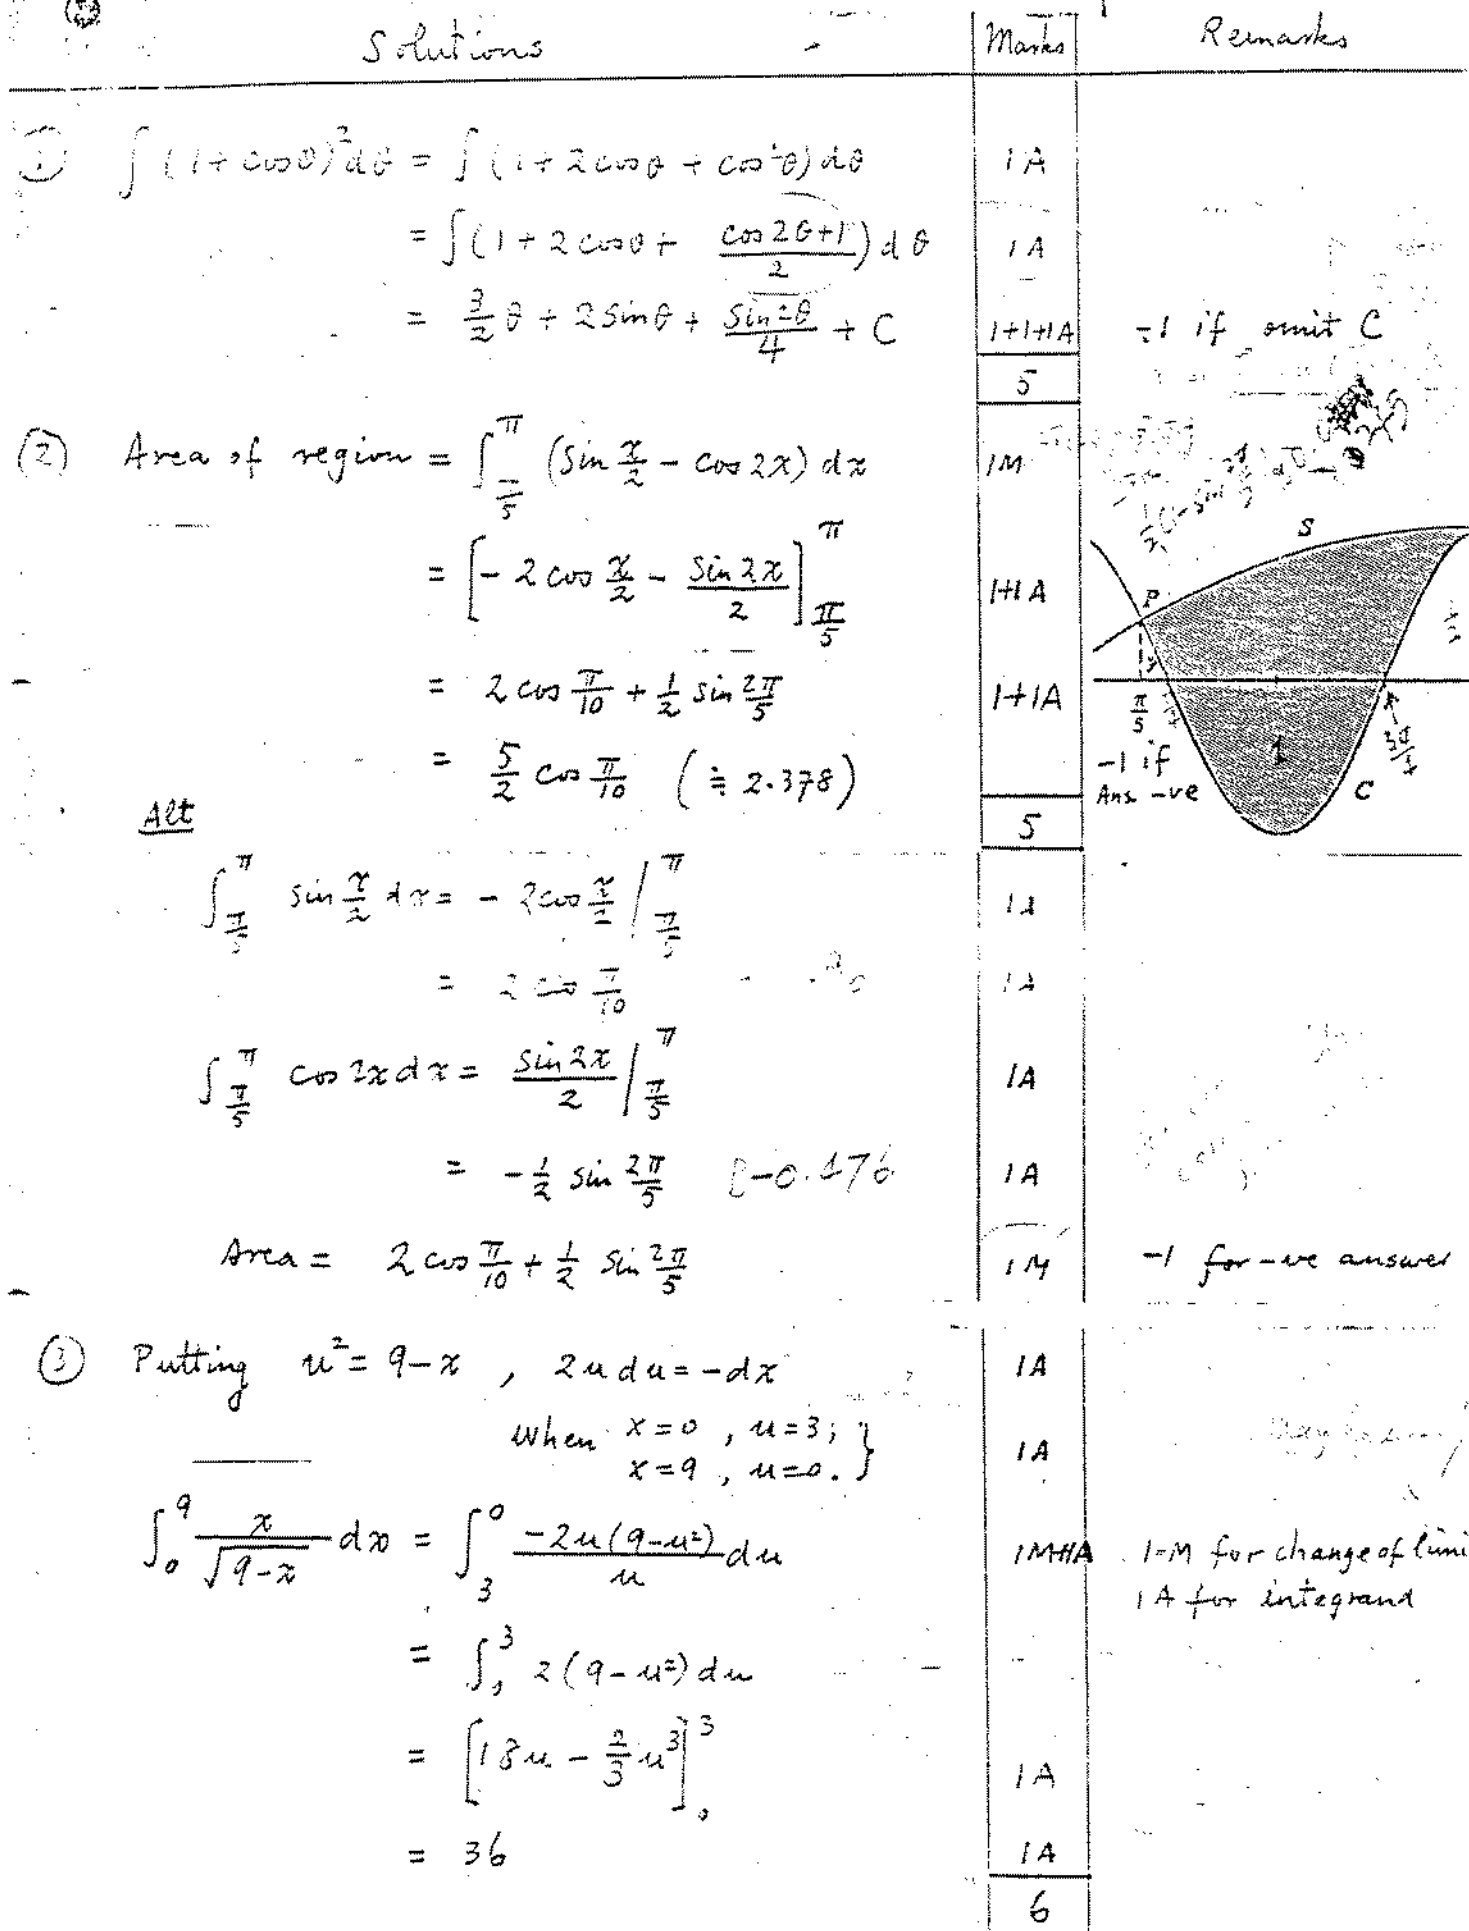 Solutions Marks Remarks
① ∫ (1 + cos θ)² dθ = ∫ (1 + 2 cos θ + cos² θ) dθ 1A
= ∫ (1 + 2 cos θ + (cos 2θ + 1)/2) dθ 1A
= 3/2 θ + 2 sin θ + sin 2θ/4 + C 1+1+1A -1 if omit C
5
(2) Area of region = ∫_{π/5}^{π} (sin x/2 - cos 2x) dx 1M
= [- 2 cos x/2 - sin 2x/2]_{π/5}^{π} 1+1A
= 2 cos π/10 + 1/2 sin 2π/5 1+1A
= 5/2 cos π/10 (≒ 2.378)
-1 if
Ans -ve
5
S
P
π/5
C
Alt
∫_{π/5}^{π} sin x/2 dx = - 2 cos x/2 |_{π/5}^{π} 1A
= 2 cos π/10 1A
∫_{π/5}^{π} cos 2x dx = sin 2x/2 |_{π/5}^{π} 1A
= - 1/2 sin 2π/5 1A
Area = 2 cos π/10 + 1/2 sin 2π/5 1M -1 for -ve answer
③ Putting u² = 9 - x , 2u du = - dx 1A
When x = 0 , u = 3;
x = 9 , u = 0. } 1A
∫_0^9 x/√(9-x) dx = ∫_3^0 -2u(9-u²)/u du 1M+1A 1-M for change of limi
1A for integrand
= ∫_0^3 2(9 - u²) du
= [18u - 2/3 u³]_0^3 1A
= 36 1A
6